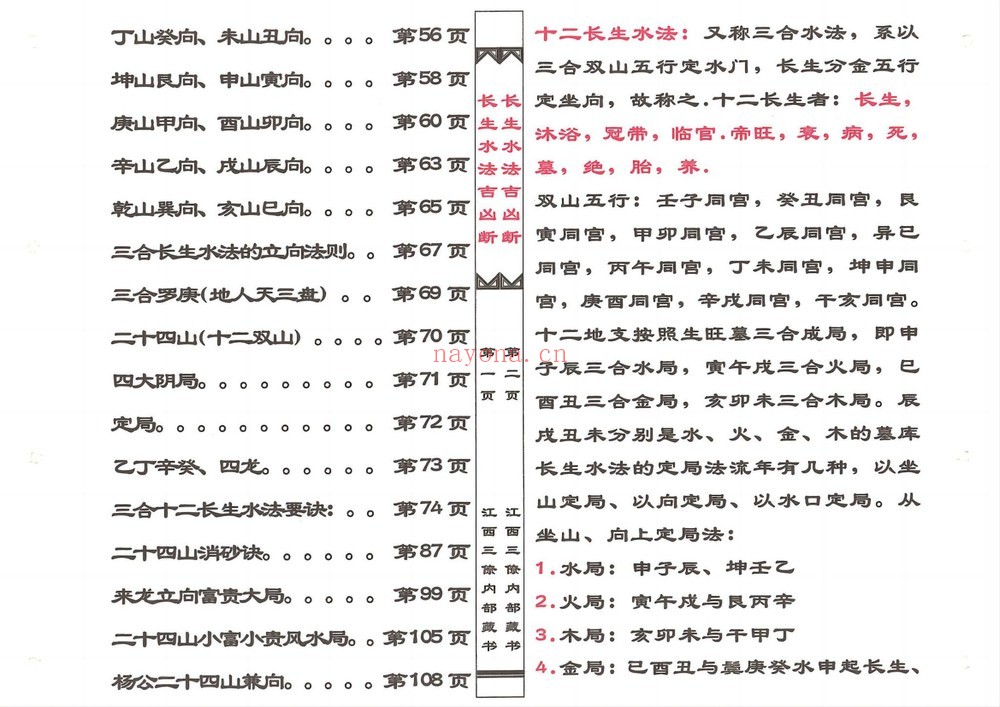 丁山癸向、未山丑向。。。。 第56页
坤山艮向、申山寅向。。。。 第58页
庚山甲向、酉山卯向。。。。 第60页
辛山乙向、戌山辰向。。。。 第63页
乾山巽向、亥山巳向。。。。 第65页
三合长生水法的立向法则。。 第67页
三合罗庚(地人天三盘) 。。 第69页
二十四山(十二双山) 。。。。第70页
四大阴局。。。。。。。。。 第71页
定局。。。。。。。。。。。 第72页
乙丁辛癸、四龙。。。。。。 第73页
三合十二长生水法要诀：。。 第74页
二十四山消砂诀。。。。。。 第87页
来龙立向富贵大局。。。。。 第99页
二十四山小富小贵风水局。。第105页
杨公二十四山兼向。。。。。第108页
长生水法吉凶断
第一页
江西三僚内部藏书
长生水法吉凶断
第二页
江西三僚内部藏书
nayona.cn
十二长生水法：又称三合水法，系以
三合双山五行定水门，长生分金五行
定坐向，故称之.十二长生者：长生，
沐浴，冠带，临官.帝旺，衰，病，死，
墓，绝，胎，养.
双山五行：壬子同宫，癸丑同宫，艮
寅同宫，甲卯同宫，乙辰同宫，异已
同宫，丙午同宫，丁未同宫，坤申同
宫，庚酉同宫，辛戌同宫，干亥同宫。
十二地支按照生旺墓三合成局，即申
子辰三合水局，寅午戌三合火局，巳
酉丑三合金局，亥卯未三合木局。辰
戌丑未分别是水、火、金、木的墓库
长生水法的定局法流年有几种，以坐
山定局、以向定局、以水口定局。从
坐山、向上定局法：
1.水局：申子辰、坤壬乙
2.火局：寅午戌与艮丙辛
3.木局：亥卯未与干甲丁
4.金局：已酉丑与巽庚癸水申起长生、